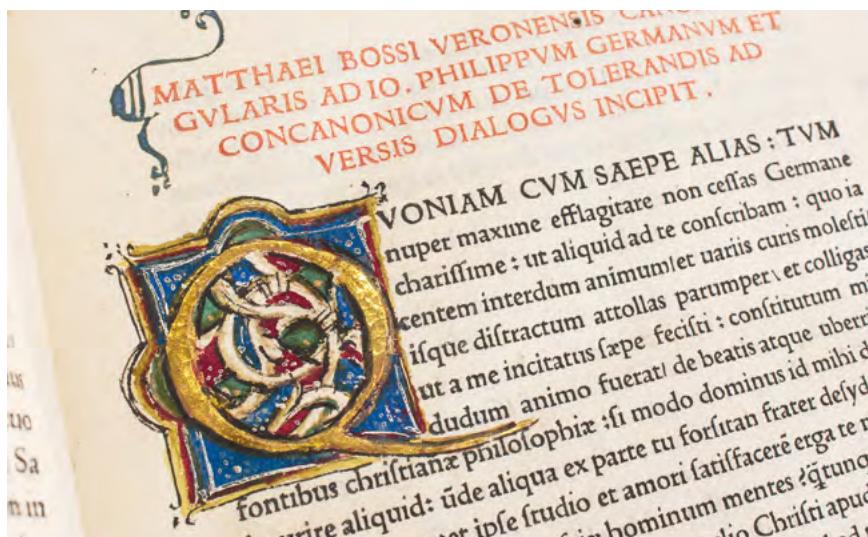 MATTHAEI BOSSI VERONENSIS
GVLARIS AD IO. PHILIPPVM GERMANVM ET
CONCANONICVM DE TOLERANDIS AD
VERSIS DIALOGVS INCIPIT.
QVONIAM CVM SAEPE ALIAS : TVM
nuper maxime efflagitare non ceſſas Germane
chariſſime : ut aliquid ad te conſcribam : quo ia
centem interdum animum/et uariis curis moleſti
iſque diſtractum attollas parumper\ et colligas
ut a me incitatus ſæpe feciſti : conſtitutum m
dudum animo fuerat/ de beatis atque uberi
fontibus chriſtianæ philoſophiæ :ſi modo dominus id mihi d
aliquid: ūde aliqua ex parte tu forſitan frater deſyd
ipſe ſtudio et amori ſatiſfacerē erga te
hominum mentes ?q̄tunq
Chriſti apu
us
uo
Sa
n in